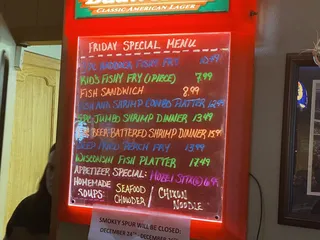 CLASSIC AMERICAN LAGER
FRIDAY SPECIAL MENU
HADDOCK FISHY FRY
KID'S FISHY FRY (1 PIECE) 7.99
FISH SANDWICH 8.99
FISH AND SHRIMP COMBO PLATTER
JUMBO SHRIMP DINNER 13.99
BEER BATTERED SHRIMP DINNER
DEEP FRIED PERCH FRY 13.99
WISCONSIN FISH PLATTER 17.49
APPETIZER SPECIAL:
HOMEMADE SOUPS SEAFOOD CHOWDER / CHICKEN NOODLE
SMOKEY SPUR WILL BE CLOSED:
DECEMBER 24TH